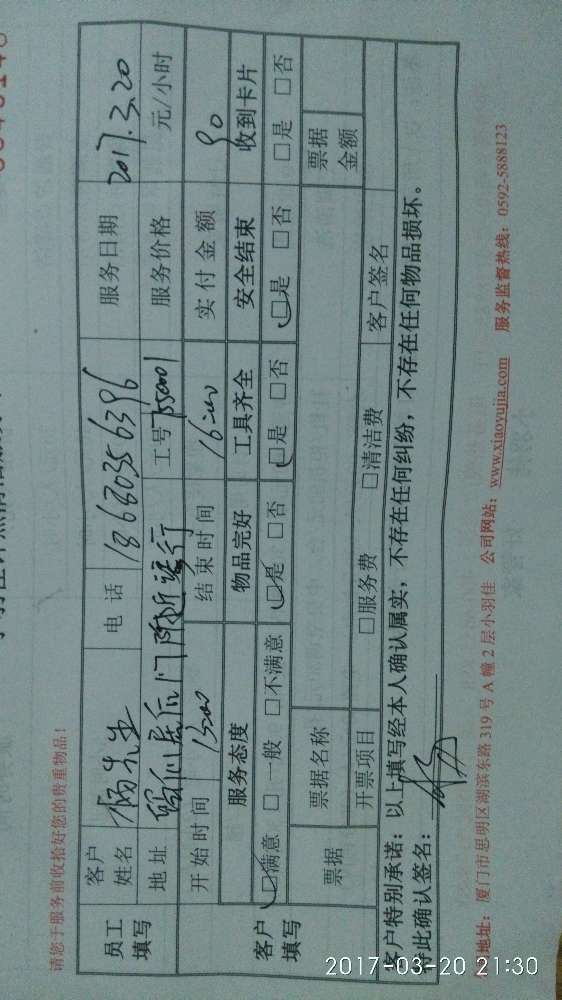 请您于服务前收拾好您的贵重物品！
员工填写 客户姓名 杨先生 电话 18680356396 服务日期 2017.3.20
地址 后门附近 工号 服务价格 元/小时
开始时间 13:00 结束时间 16:00 实付金额 90
客户填写 服务态度 物品完好 工具齐全 安全结束 收到卡片
□满意 □一般 □不满意 □是 □否 □是 □否 □是 □否 □是 □否
票据 票据名称 票据金额
开票项目 □服务费 □清洁费 客户签名
客户特别承诺：以上填写经本人确认属实，不存在任何纠纷，不存在任何物品损坏。
特此确认签名：
地址：厦门市思明区湖滨东路 319 号 A 幢 2 层小羽佳 公司网站：www.xiaoyujia.com 服务监督热线：0592-5888123
2017-03-20 21:30